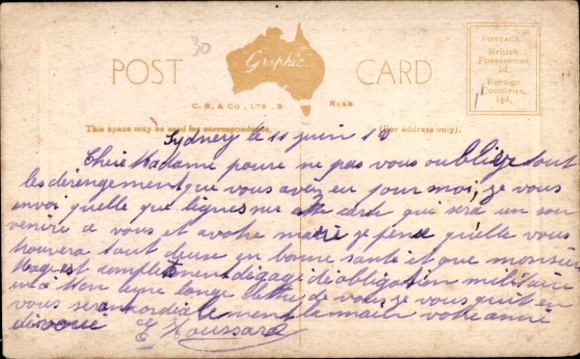 30
POST Graphic CARD
C. B. & Co., LTD., S REGD.
POSTAGE
British
Possessions
1d.
Foreign
Countries,
1½d.
This space may be used for correspondence. (For address only).
Sydney le 11 juin 1
Chere Madame pour ne pas vous oublier tout
les dérengement que vous avez eu pour moi, je vous
envoi quelle que lignes sur cette carte qui sera un sou
venire a vous et a votre mari je pense qu'elle vous
trouvera tout deux en bonne santé et que monsieur
est complètement dégagé d'obligation militaire
une longe lettre de vous je vous quit en
vous serian cordiale ment la main votre ami
dévoué E Houssard